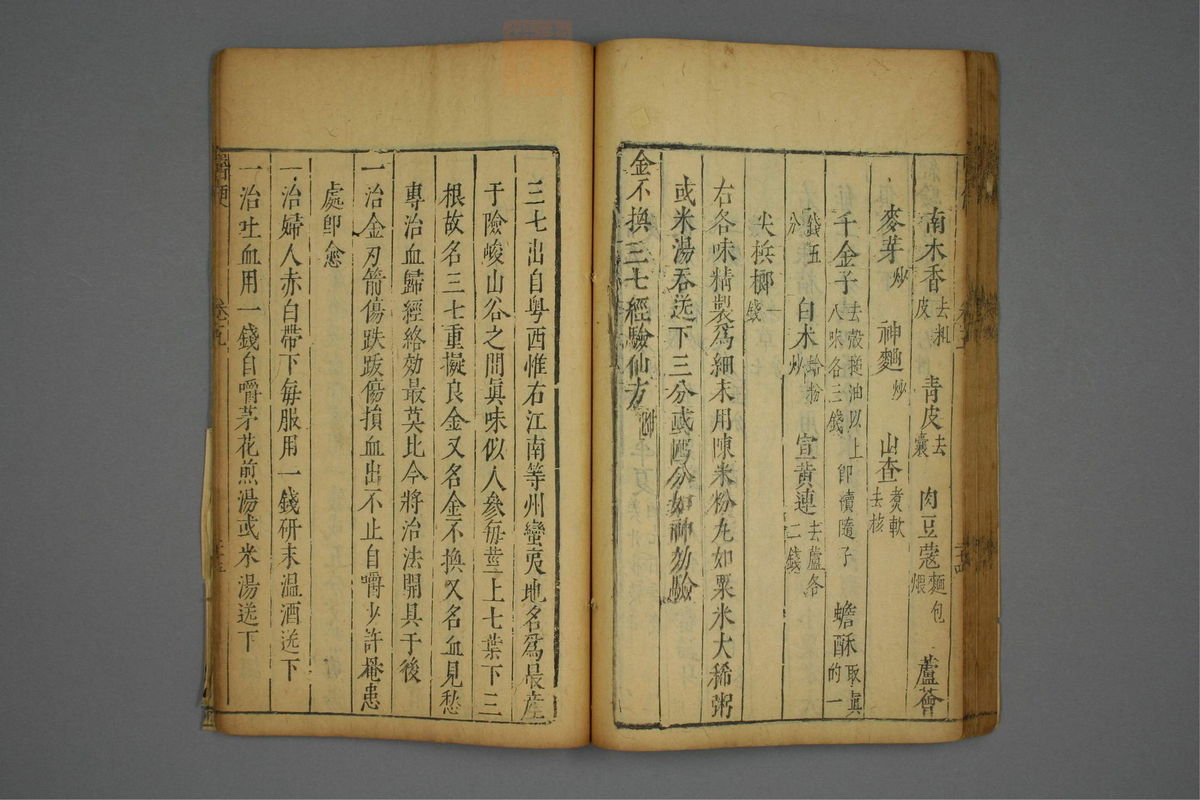 南木香去粃皮 青皮去囊 肉豆蔻麵包煨 蘆薈
麥芽炒 神麯炒 山查煮軟去核
千金子去殼搥油以上八味各三錢卽續隨子 蟾酥取眞的一
錢五分 白木蛤粉炒 宣黃連去蘆各二錢
尖梹榔一錢
右各味精製爲細末用陳米粉丸如粟米大稀粥
或米湯吞送下三分或四分如神効驗
金不換三七經驗仙方附
三七出自粤西惟右江南等州蠻夷地名爲最産
于險峻山谷之間眞味似人參每莖上七葉下三
根故名三七重擬良金又名金不換又名血見愁
專治血歸經絡効最莫比今將治法開具于後
一治金刃箭傷跌跋傷損血出不止自嚼少許罨患
處卽愈
一治婦人赤白帶下每服用一錢研末温酒送下
一治吐血用一錢自嚼茅花煎湯或米湯送下